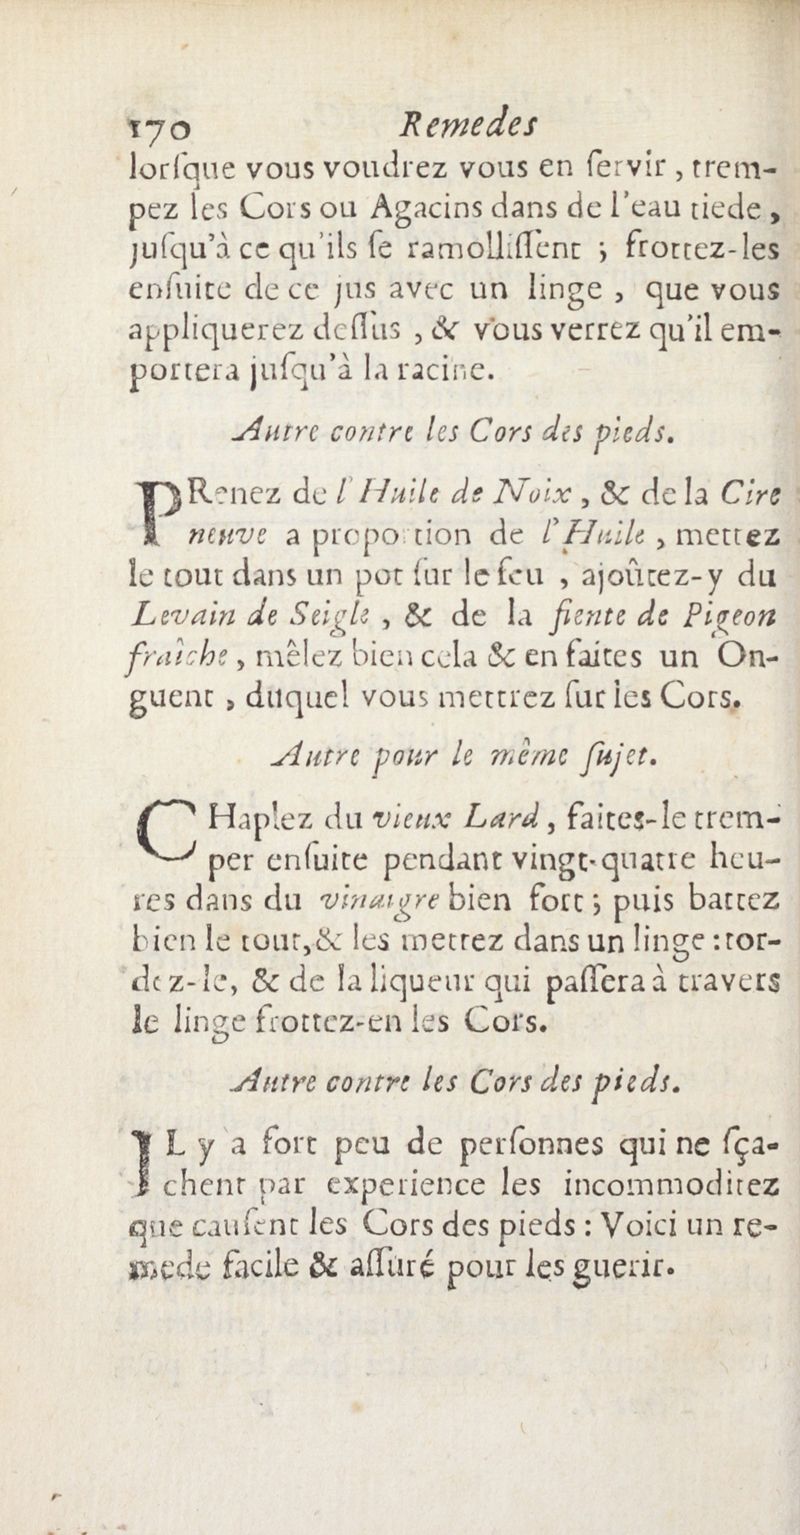 170 Remedes
lorſque vous voudrez vous en ſervir, trem-
pez les Cors ou Agacins dans de l'eau tiede,
juſqu'à ce qu'ils ſe ramolliſſent ; frottez-les
enſuite de ce jus avec un linge, que vous
appliquerez deſſus, & vous verrez qu'il em-
portera juſqu'à la racine.
Autre contre les Cors des pieds.
PRenez de l'Huile de Noix, & de la Cire
neuve a proportion de l'Huile, mettez
le tout dans un pot ſur le feu, ajoûtez-y du
Levain de Seigle, & de la fiente de Pigeon
fraîche, mêlez bien cela & en faites un On-
guent, duquel vous mettrez ſur les Cors.
Autre pour le même ſujet.
CHaplez du vieux Lard, faites-le trem-
per enſuite pendant vingt-quatre heu-
res dans du vinaigre bien fort ; puis battez
bien le tout, & les mettez dans un linge : tor-
dez-le, & de la liqueur qui paſſera à travers
le linge frottez-en les Cors.
Autre contre les Cors des pieds.
IL y a fort peu de perſonnes qui ne ſça-
chent par experience les incommoditez
que cauſent les Cors des pieds : Voici un re-
mede facile & aſſuré pour les guerir.